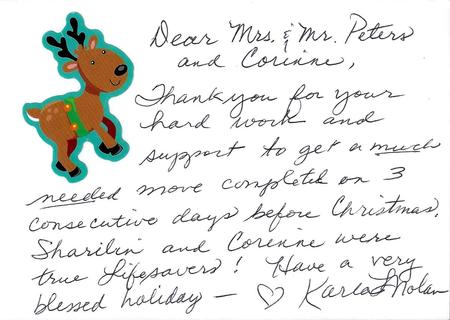 Dear Mrs. & Mr. Peters
and Corinne,
Thank you for your
hard work and
support to get a much
needed move completed on 3
consecutive days before Christmas.
Sharilin and Corinne were
true lifesavers! Have a very
blessed holiday — ♡ Karla Nolan